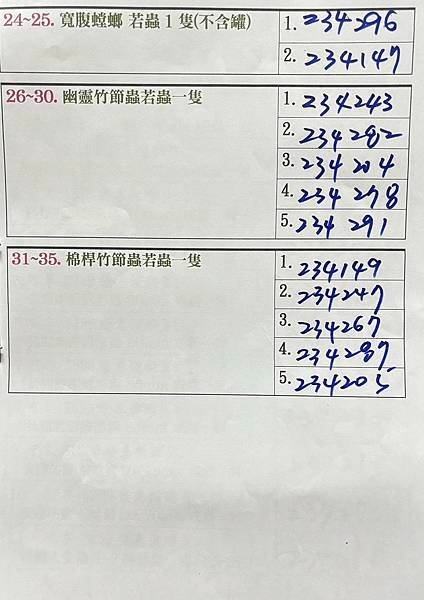 24~25. 寬腹螳螂 若蟲 1 隻(不含罐)
1. 234296
2. 234147
26~30. 幽靈竹節蟲若蟲一隻
1. 234243
2. 234282
3. 234204
4. 234298
5. 234291
31~35. 棉桿竹節蟲若蟲一隻
1. 234149
2. 234247
3. 234267
4. 234287
5. 234205